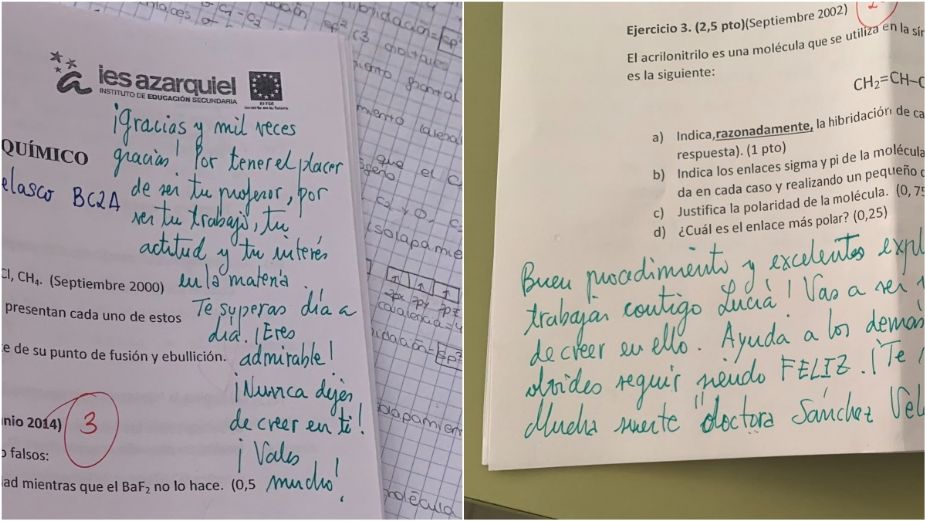 ies azarquiel
INSTITUTO DE EDUCACIÓN SECUNDARIA
QUÍMICO
elasco BC2A
¡Gracias y mil veces
gracias! Por tener el placer
de ser tu profesor, por
ver tu trabajo, tu
actitud y tu interés
en la materia.
Te superas día a
día. ¡Eres
admirable!
¡Nunca dejes
de creer en ti!
¡Vales
mucho!
Cl, CH₄. (Septiembre 2000)
presentan cada uno de estos
e de su punto de fusión y ebullición.
nio 2014)
3
o falsos:
ad mientras que el BaF₂ no lo hace. (0,5
Ejercicio 3. (2,5 pto)(Septiembre 2002)
El acrilonitrilo es una molécula que se utiliza en la sín
es la siguiente:
CH₂=CH–C
a) Indica, razonadamente, la hibridación de ca
respuesta). (1 pto)
b) Indica los enlaces sigma y pi de la molécula
da en cada caso y realizando un pequeño
c) Justifica la polaridad de la molécula. (0,75
d) ¿Cuál es el enlace más polar? (0,25)
Buen procedimiento y excelentes expl
trabajar contigo Lucía! Vas a ser
de creer en ello. Ayuda a los demás
olvides seguir siendo FELIZ. ¡Te
Mucha suerte "doctora Sánchez Vel